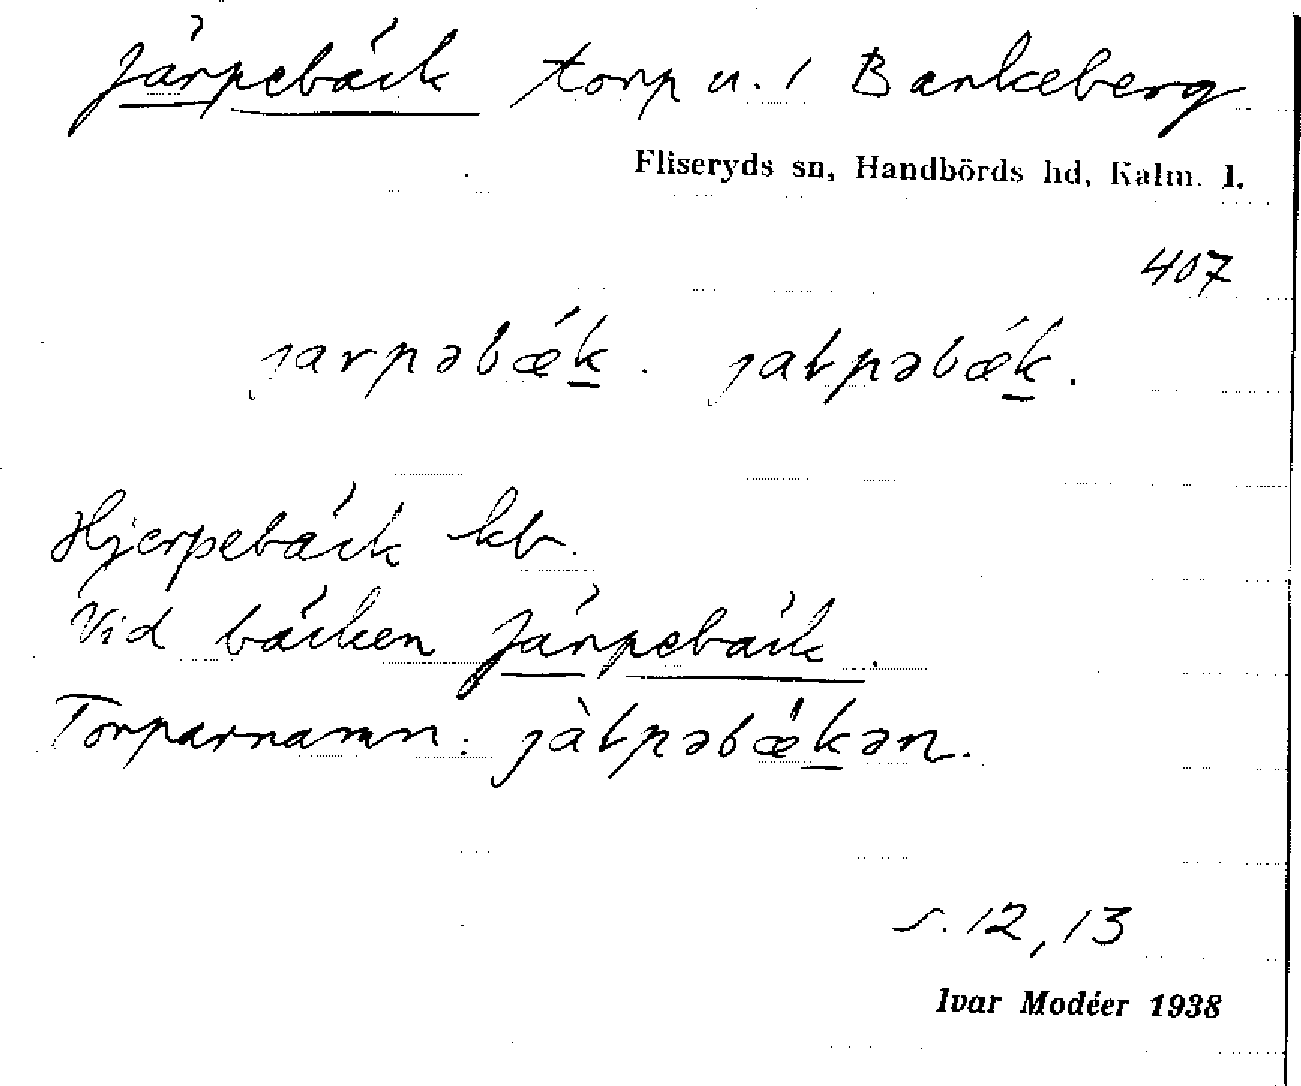 Järpebäck torp u. 1 Bankeberg
Fliseryds sn, Handbörds hd, Kalm. l.
407
jarpəbǽk. jałpəbǽk.
Hjerpebäck kb.
Vid bäcken Järpebäck.
Torparnamn: jàłpəbækən.
s. 12, 13
Ivar Modéer 1938